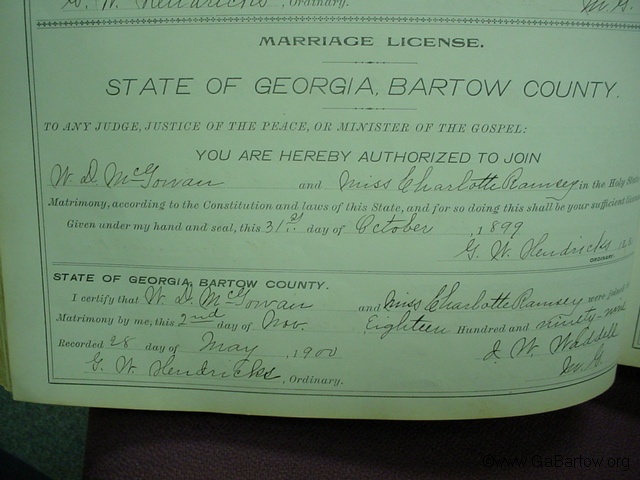 G. W. Hendricks, Ordinary. M. G.
MARRIAGE LICENSE.
STATE OF GEORGIA, BARTOW COUNTY.
TO ANY JUDGE, JUSTICE OF THE PEACE, OR MINISTER OF THE GOSPEL:
YOU ARE HEREBY AUTHORIZED TO JOIN
W. D. McGowan and Miss Charlotte Ramsey in the Holy State
Matrimony, according to the Constitution and laws of this State, and for so doing this shall be your sufficient
Given under my hand and seal, this 31st day of October, 1899
G. W. Hendricks
ORDINARY.
STATE OF GEORGIA, BARTOW COUNTY.
I certify that W. D. McGowan and Miss Charlotte Ramsey were joined
Matrimony by me, this 2nd day of Nov. Eighteen Hundred and ninety-nine
Recorded 28 day of May, 1900 J. W. Waddell
G. W. Hendricks, Ordinary. M. G.
©www.GaBartow.org